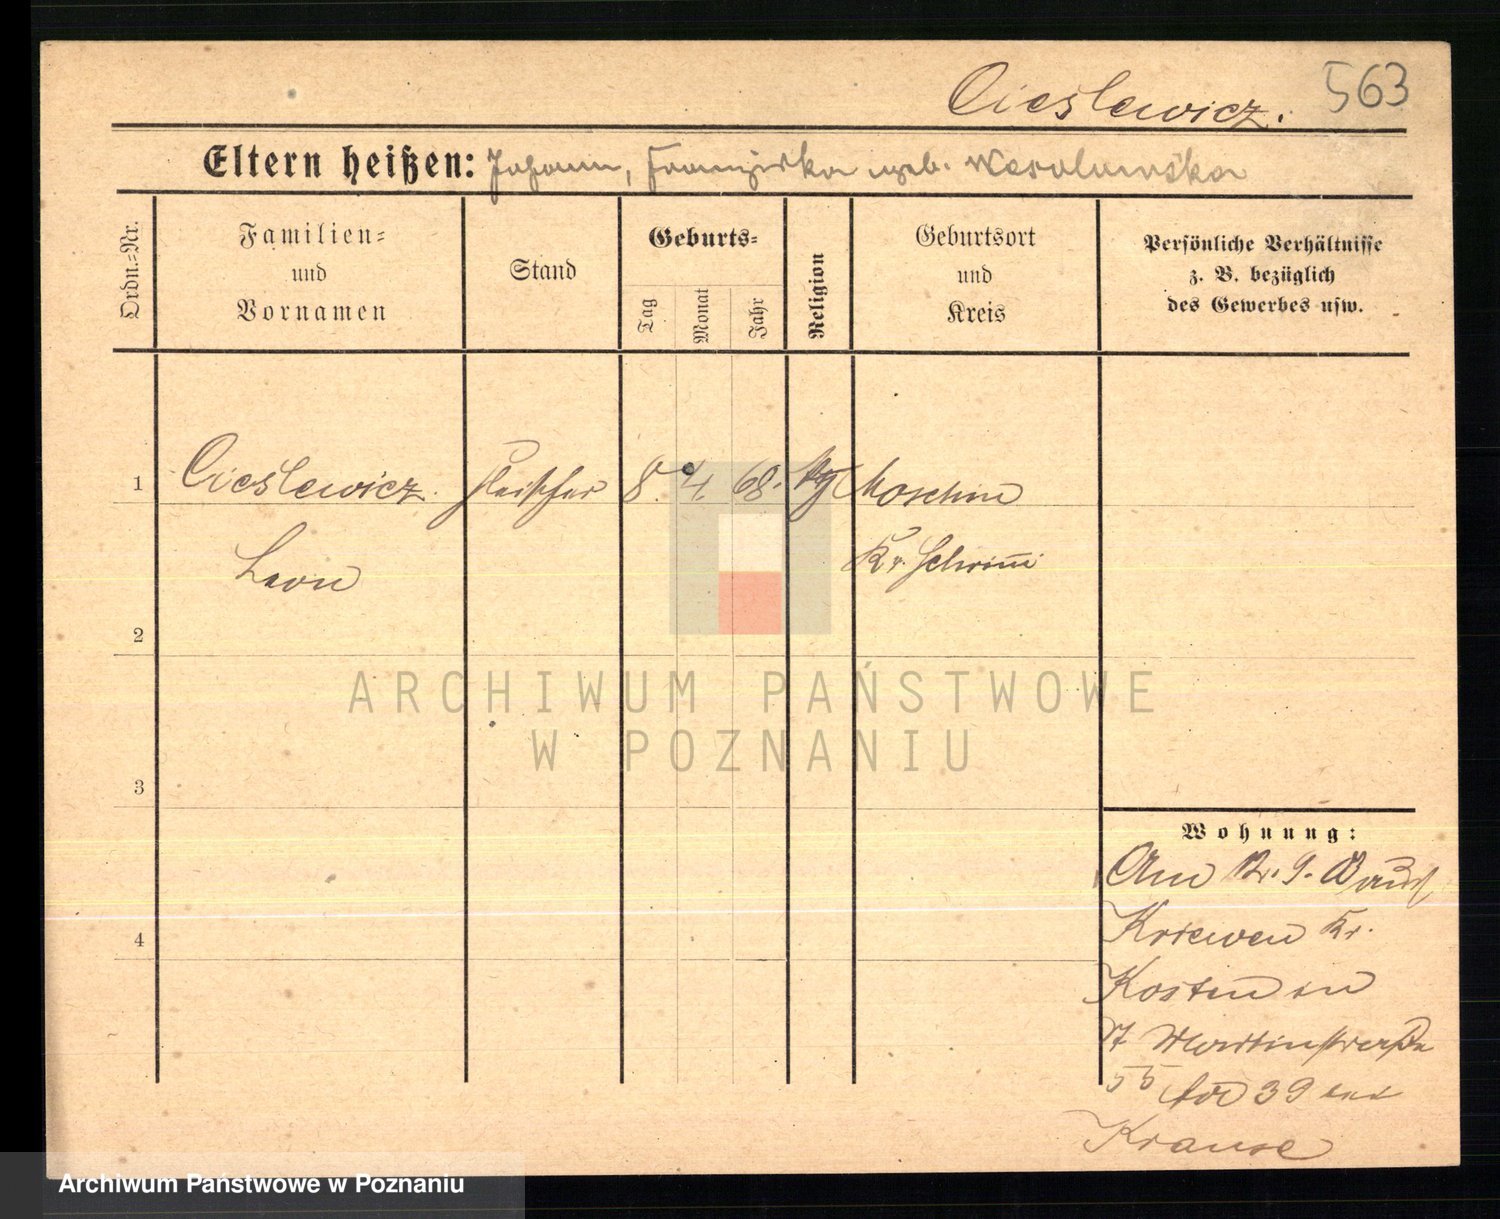 Cieslewicz. 563
Eltern heißen: Johann, Franziska geb. Wesolowska
Ordn.-Nr.
Familien-
und
Vornamen
Stand
Geburts-
Tag
Monat
Jahr
Religion
Geburtsort
und
Kreis
Persönliche Verhältnisse
z. B. bezüglich
des Gewerbes usw.
1 Cieslewicz. Fleischer 8. 4. 68. Moschin
Leon Kr. Schrimm
2
3
4
Wohnung:
Am 12. 9.
Kriewen Kr.
Kosten in
St Martinstraße
55 39 bei
Krause
ARCHIWUM PAŃSTWOWE
W POZNANIU
Archiwum Państwowe w Poznaniu